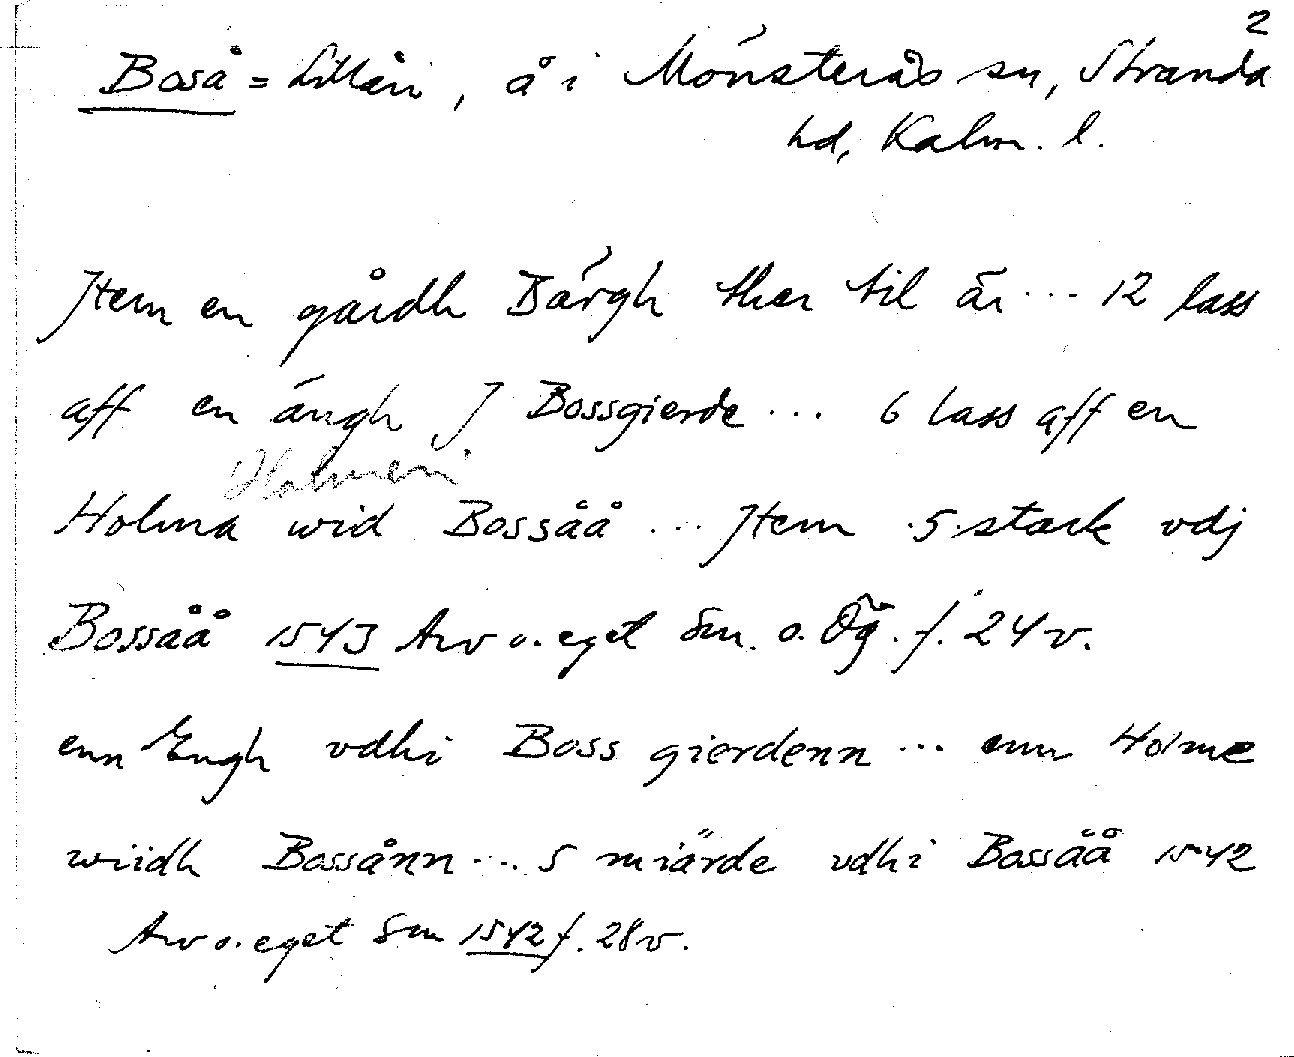 2
Boså = Lillån, å i Mönsterås sn, Stranda
hd, Kalm. l.
Jtem en gårdh Bärgh ther til är ... 12 lass
aff en ängh J Bossgierde ... 6 lass aff en
Holmen
Holma wid Bossåå ... Jtem 5 stack vdj
Bossåå 1543 Arv o. eget Sm. o. Ög. f. 24 v.
enn Engh vdhi Boss gierdenn ... enn Holme
wiidh Bossånn ... 5 miärde vdhi Bossåå 1542
Arv o. eget Sm 1542 f. 28 v.